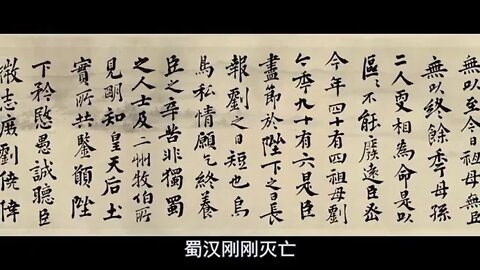 無以至今日祖母無臣
無以終餘季母孫
二人更相為命是以
區〻不能廢遠臣密
今年四十有四祖母劉
今季九十有六是臣
盡節於陛下之日長
報劉之日短也烏
鳥私情願乞終養
臣之辛苦非獨蜀
之人士及二州牧伯所
見明知皇天后土
實所共鑒願陛
下矜愍愚誠聽臣
微志庶劉僥倖
蜀汉刚刚灭亡